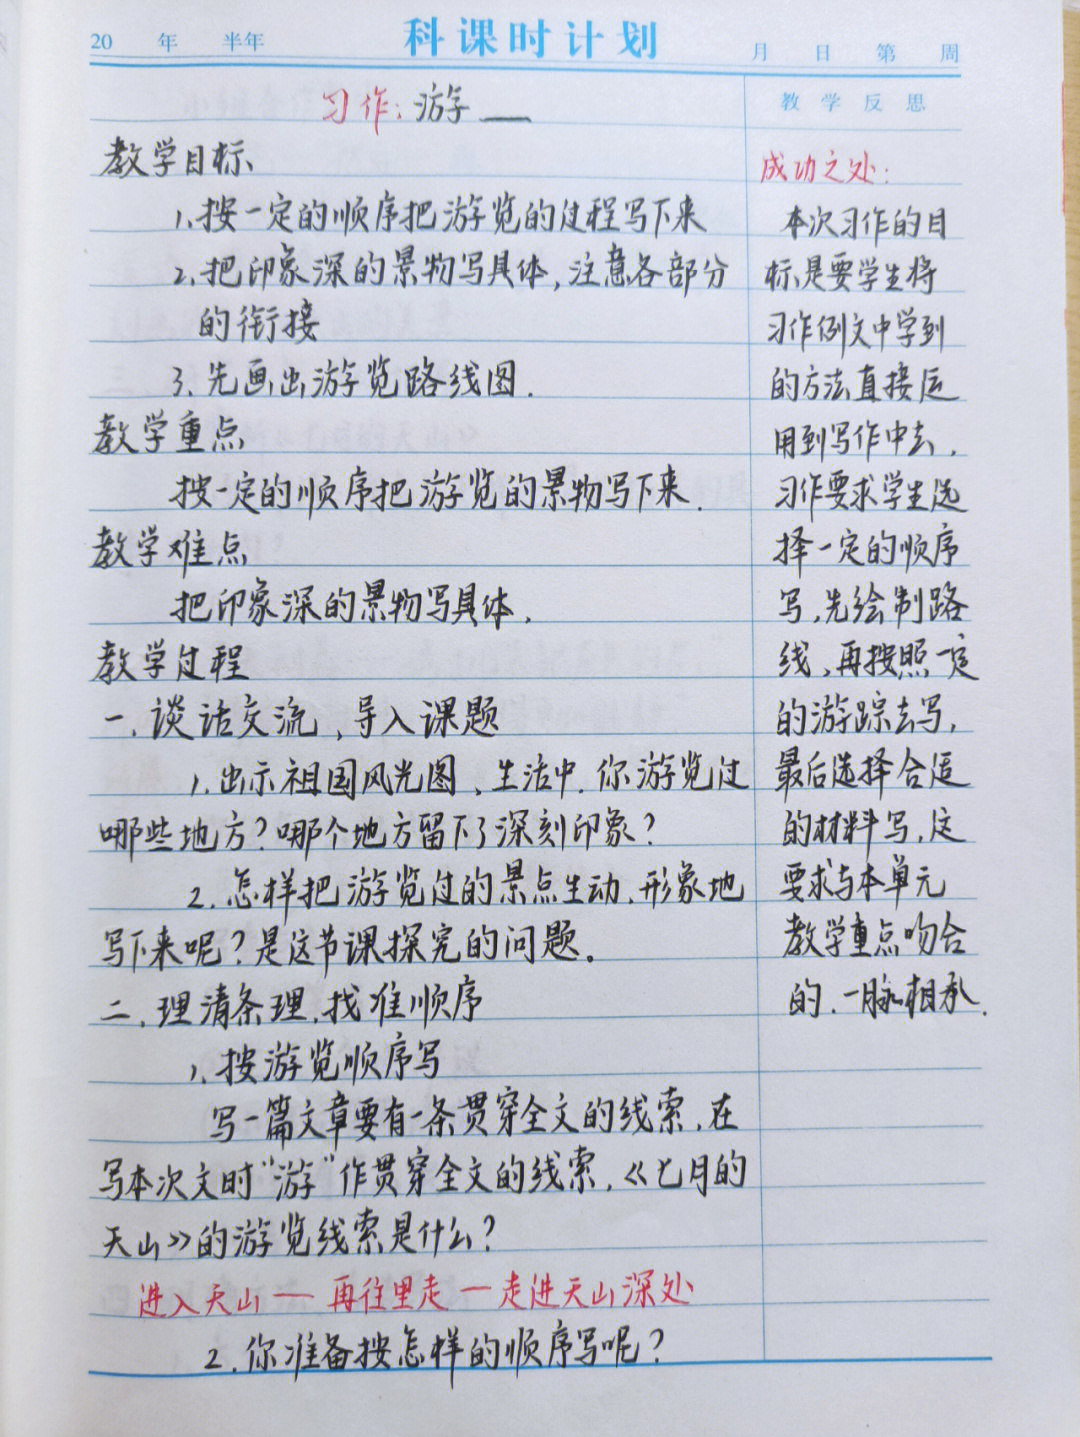 20 年 半年 科课时计划 月 日 第 周
习作:游___
教学目标
1.按一定的顺序把游览的过程写下来
2.把印象深的景物写具体,注意各部分
的衔接
3.先画出游览路线图.
教学重点
按一定的顺序把游览的景物写下来.
教学难点
把印象深的景物写具体.
教学过程
一.谈话交流,导入课题
1.出示祖国风光图、生活中.你游览过
哪些地方?哪个地方留下了深刻印象?
2.怎样把游览过的景点生动.形象地
写下来呢?是这节课探究的问题。
二.理清条理.找准顺序
1.按游览顺序写
写一篇文章要有一条贯穿全文的线索.在
写本次文时“游”作贯穿全文的线索.《七月的
天山》的游览线索是什么?
进入天山—再往里走—走进天山深处
2.你准备按怎样的顺序写呢?
教学反思
成功之处:
本次习作的目
标是要学生将
习作例文中学到
的方法直接运
用到写作中去.
习作要求学生选
择一定的顺序
写,先绘制路
线,再按照一定
的游踪去写,
最后选择合适
的材料写,这
要求与本单元
教学重点吻合
的.一脉相承.